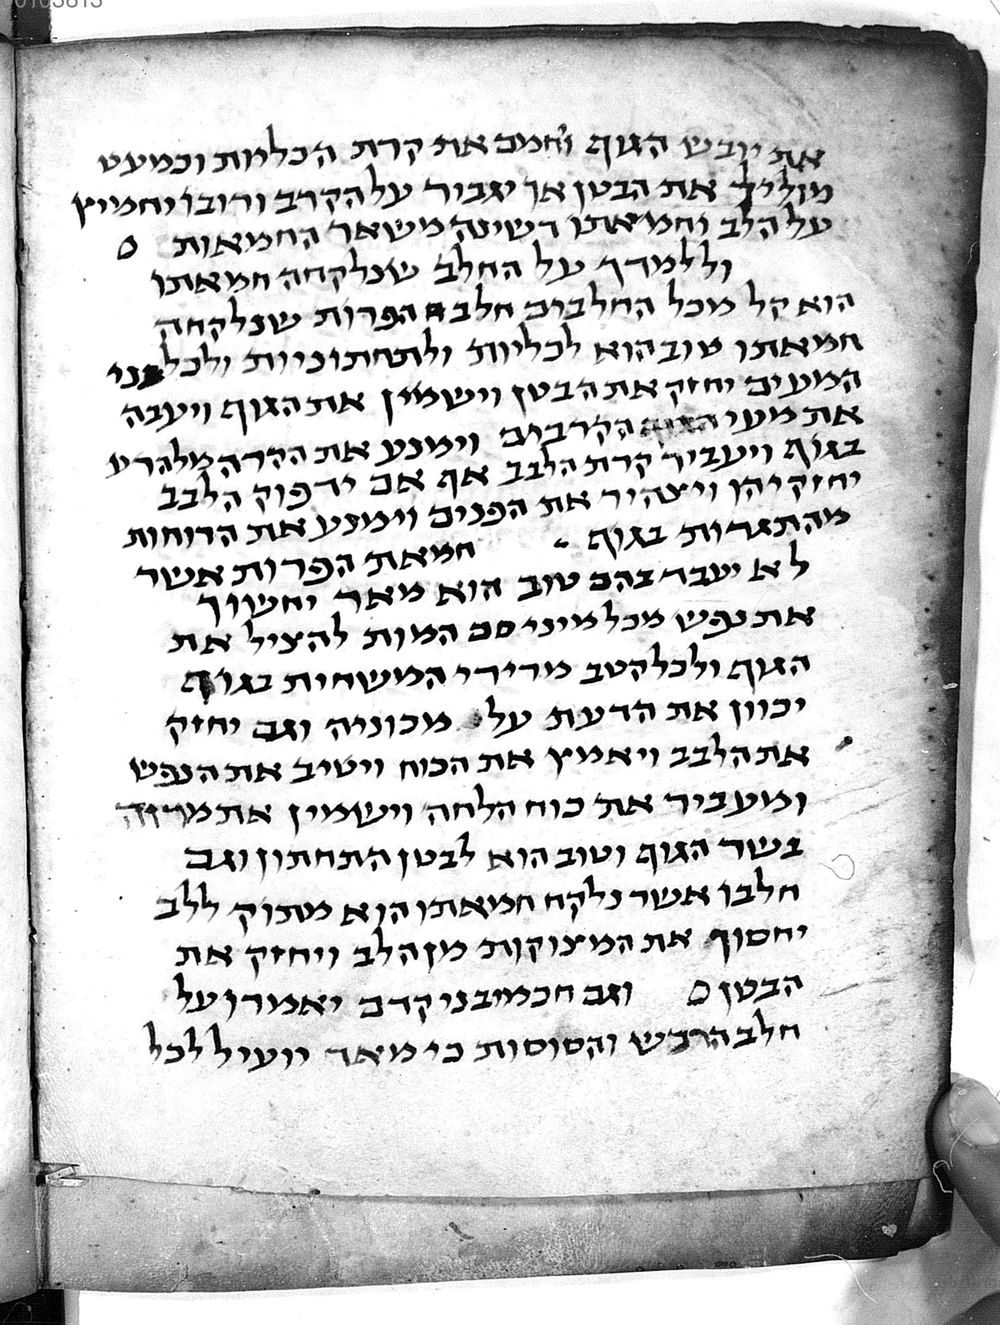 את יובש הגוף ויחמם את קרת הכליות וכמעט
מוליך את הבטן אך יגביר על הקרב ורובו יחמיץ
על הלב וחמאתו דשינה משאר החמאות
וללמדך על החלב שנלקחה חמאתו
הוא קל מכל החלבים חלב הפרות שנלקחה
חמאתו טוב הוא לכליות ולתחתוניות ולכל
המעים יחזק את הבטן וישמין את הגוף ויענה
את מעי הקרבים וימנע את הקרה מלהרע
בגוף ויעביר קרת הלבב אף אם ירפוק הלבב
יחזקיהו ויצהיר את הפנים וימנע את הרוחות
מהתגרות בגוף חמאת הפרות אשר
לא יעבד בהם טוב הוא מאד יחשוך
את נפש מכל מיני סם המות להציל את
הגוף ולכל קטב מרירי המשחית בגוף
יכוון את הדעת על מכוניה וגם יחזק
את הלבב ויאמץ את הכוח ויטיב את הנפש
ומעביר את כוח הלחה וישמין את מרוה
בשר הגוף וטוב הוא לבטן התחתון וגם
חלבו אשר נלקח חמאתו הוא מתוק ללב
יחסוך את המצוקות מן הלב ויחזק את
הבטן וגם חכמי בני קדם יאמרו על
חלב הרכש והסוסות כי מאד יועיל לכל